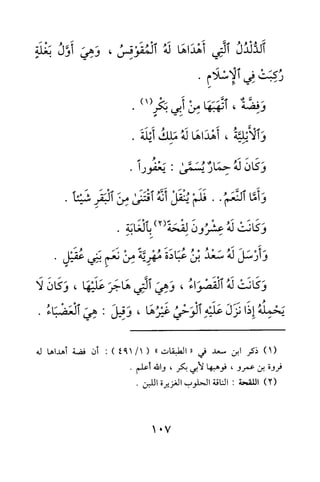 ٱلدُّلْدُلُ ٱلَّتِي أَهْدَاهَا لَهُ ٱلْمُقَوْقِسُ ، وَهِيَ أَوَّلُ بَغْلَةٍ
رُكِبَتْ فِي ٱلْإِسْلَامِ .
وَفِضَّةٌ ، ٱتَّهَبَهَا مِنْ أَبِي بَكْرٍ(١) .
وَٱلْأَيْلِيَّةُ ، أَهْدَاهَا لَهُ مَلِكُ أَيْلَةَ .
وَكَانَ لَهُ حِمَارٌ يُسَمَّىٰ : يَعْفُوراً .
وَأَمَّا ٱلنَّعَمُ.. فَلَمْ يُنْقَلْ أَنَّهُ ٱقْتَنَىٰ مِنَ ٱلْبَقَرِ شَيْئاً .
وَكَانَتْ لَهُ عِشْرُونَ لِقْحَةً(٢) بِٱلْغَابَةِ .
وَأَرْسَلَ لَهُ سَعْدُ بْنُ عُبَادَةَ مُهْرِيَّةً مِنْ نَعَمِ بَنِي عُقَيْلٍ .
وَكَانَتْ لَهُ ٱلْقَصْوَاءُ ، وَهِيَ ٱلَّتِي هَاجَرَ عَلَيْهَا ، وَكَانَ لَا
يَحْمِلُهُ إِذَا نَزَلَ عَلَيْهِ ٱلْوَحْيُ غَيْرُهَا ، وَقِيلَ : هِيَ ٱلْعَضْبَاءُ .
(١) ذكر ابن سعد في « الطبقات » ( ١/ ٤٩١ ) : أن فضة أهداها له
فروة بن عمرو ، فوهبها لأبي بكر ، والله أعلم .
(٢) اللقحة : الناقة الحلوب الغزيرة اللبن .
١٠٧